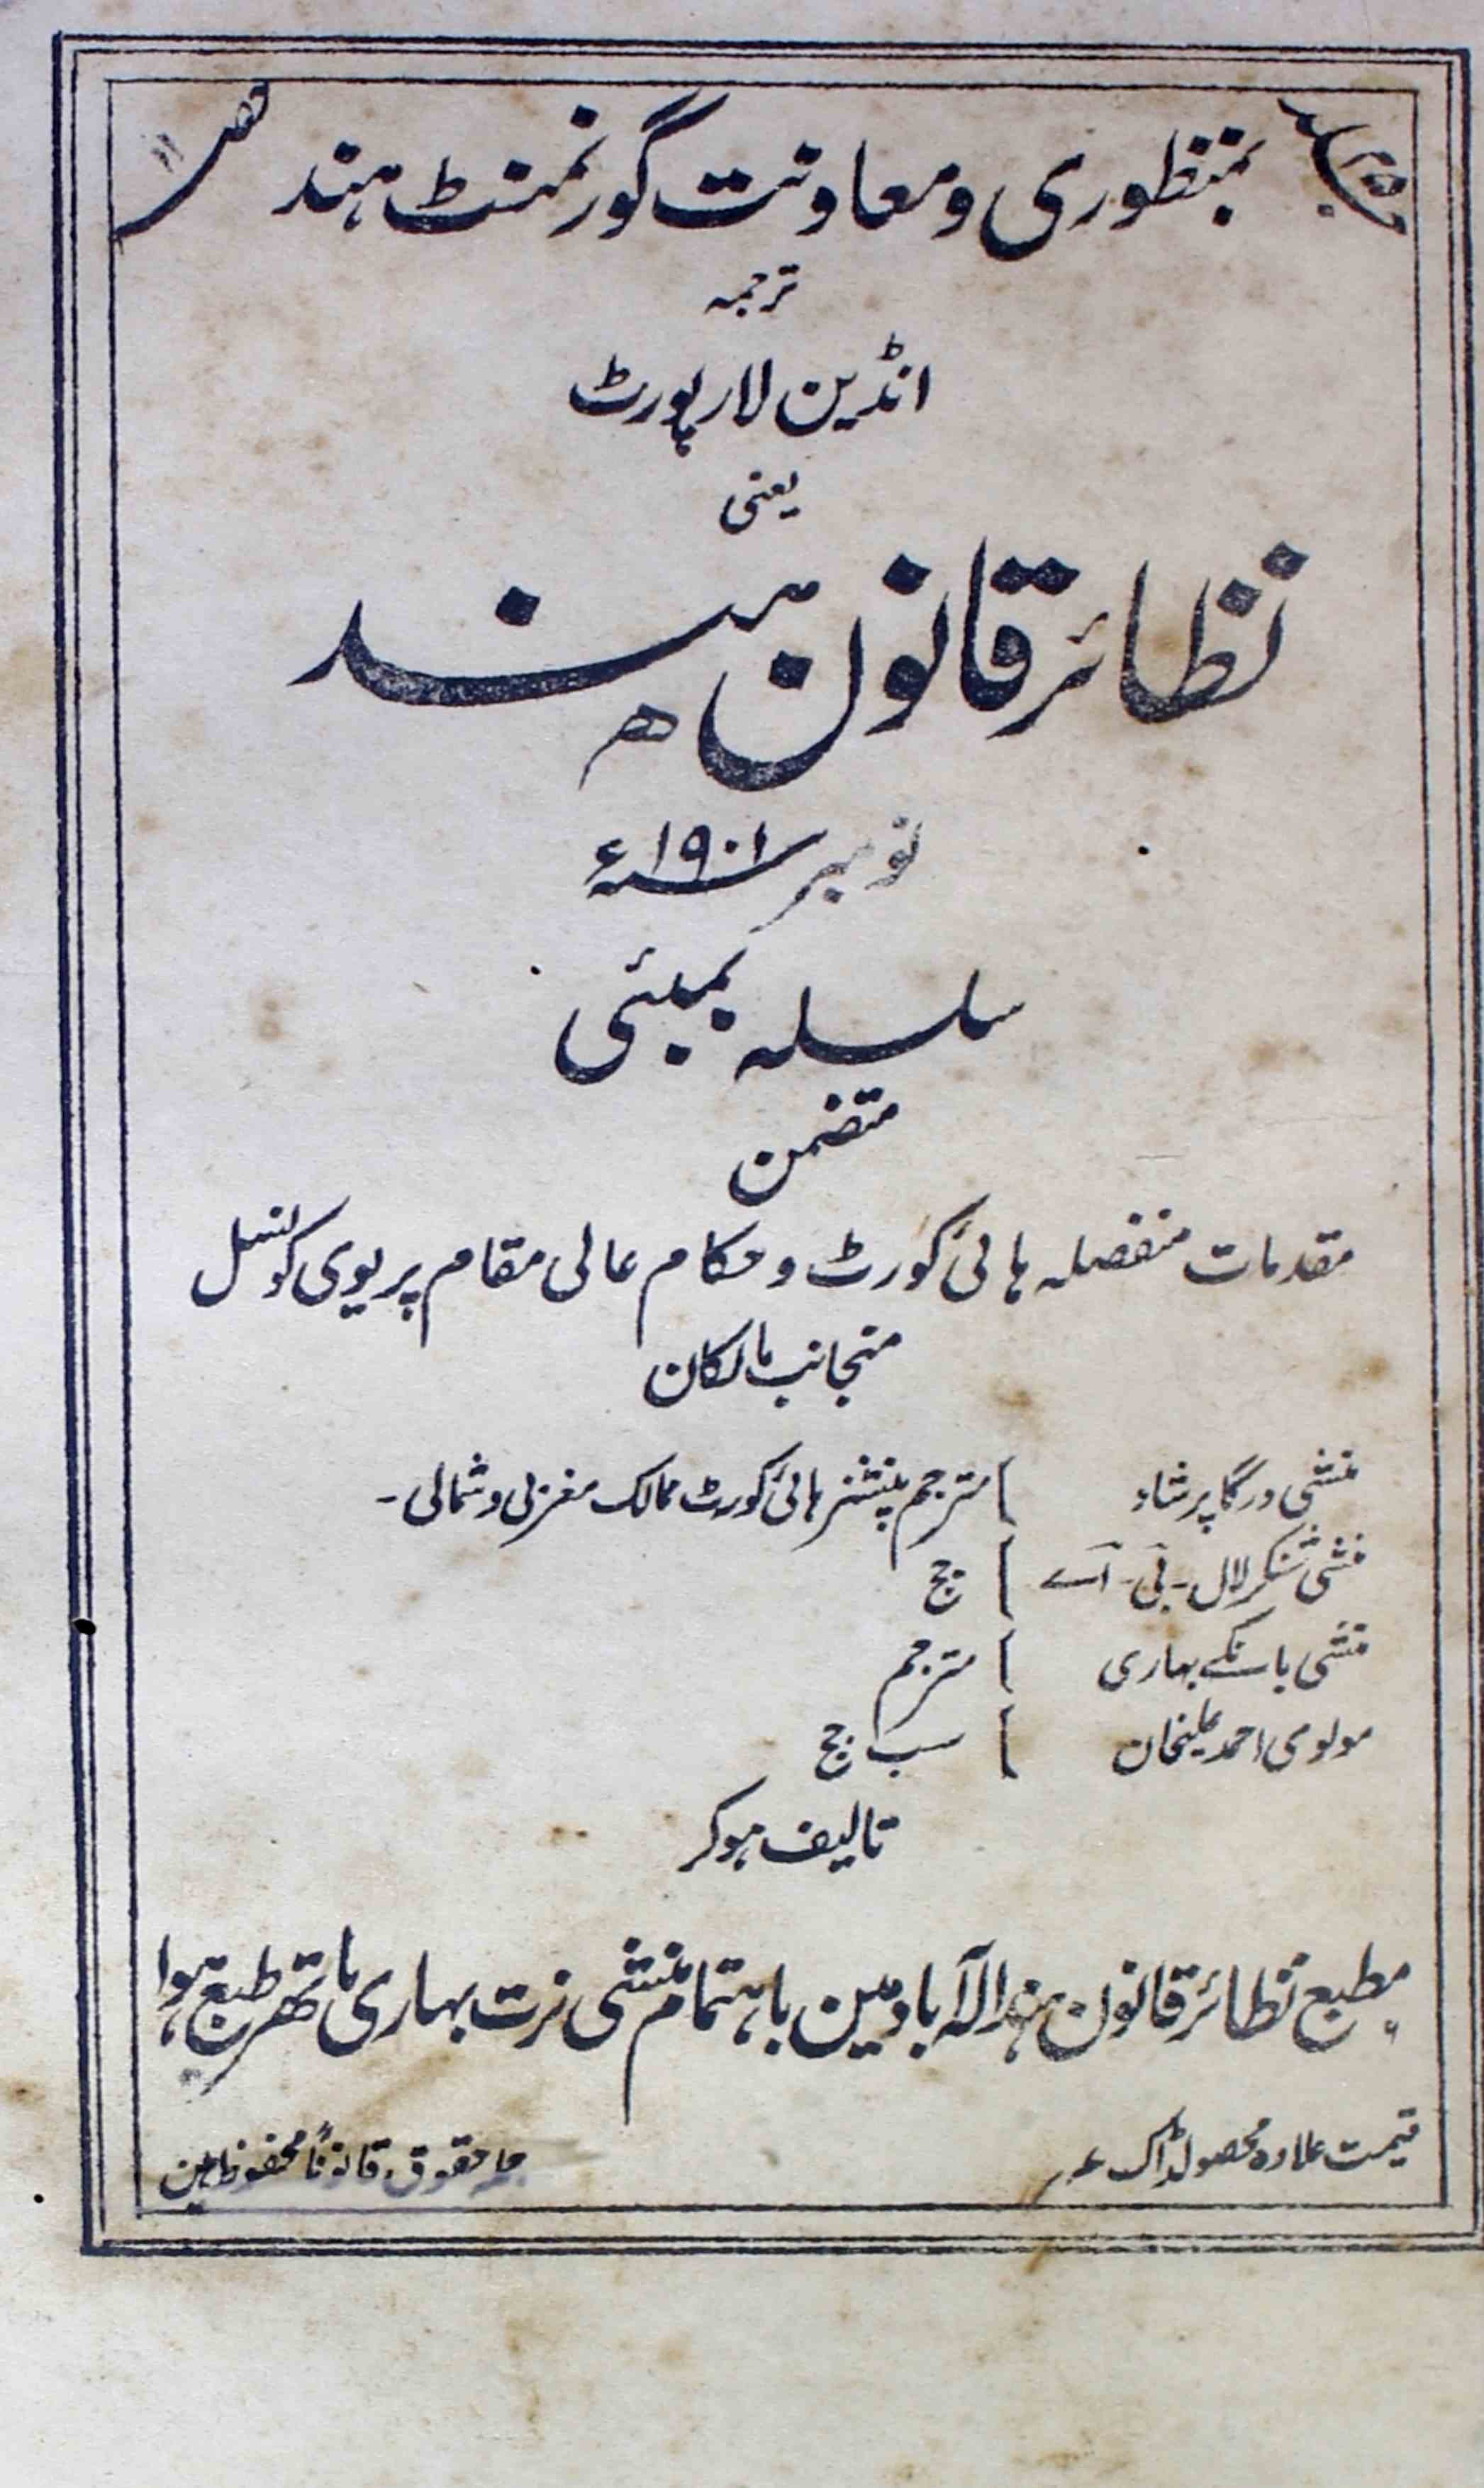 بمنظوری و معاونت گورنمنٹ ہند
ترجمہ
انڈین لا رپورٹ
یعنی
نظائر قانون ہند
نومبر ۱۹۰۱ء
سلسلہ بمبئی
متضمن
مقدمات منفصلہ ہائی کورٹ و حکام عالی مقام پریوی کونسل
منجانب مالکان
منشی درگا پرشاد مترجم پنشنر ہائی کورٹ ممالک مغربی و شمالی -
منشی شنکر لال - بی - اے جج
منشی بانکے بہاری مترجم
مولوی احمد علیخان سب جج
تالیف ہوکر
مطبع نظائر قانون ہند الہ آباد مین باہتمام منشی نرت بہاری ماتھر طبع ہوا
قیمت علاوہ محصول ڈاک
جملہ حقوق قانوناً محفوظ ہین